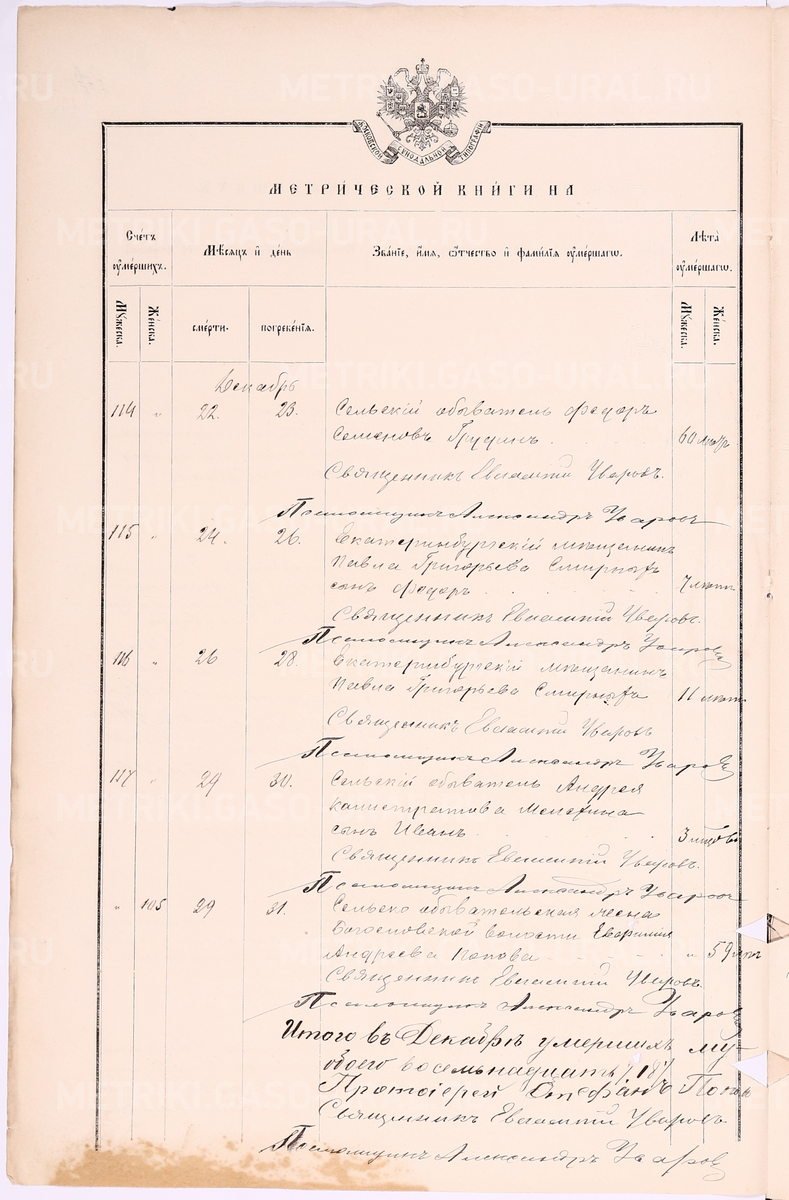 METRIKI.GASO-URAL.RU
МОСКОВСКОЙ СѴНОДАЛЬНОЙ ТИПОГРАФІИ
МЕТРИ́ЧЕСКОЙ КНИ́ГИ НА
Сче́тъ ᲂуме́ршихъ.
Мѣ́сяцъ и҆ де́нь
Зва́нїе, и҆́мя, ѻ҆́тчество и҆ фамі́лїа ᲂуме́ршагѡ.
Лѣ̑та ᲂуме́ршагѡ.
Мꙋ́жеска.
Же́нска.
сме́рти.
погребе́нїя.
Мꙋ́жеска.
Же́нска.
Декабрь
114 " 22. 23. Сельскій обыватель Федоръ
Семеновъ Грудинъ 60 лѣтъ
Священникъ Евгампій Уваровъ.
Псаломщикъ Александръ Уваровъ
115 " 24. 26. Екатеринбургскій мѣщанинъ
Павла Григорьева Смирныхъ
сынъ Федоръ 7 лѣтъ
Священникъ Евгампій Уваровъ.
Псаломщикъ Александръ Уваровъ
116 " 26 28. Екатеринбургскій мѣщанинъ
Павла Григорьева Смирныхъ 11 лѣтъ
Священникъ Евгампій Уваровъ
Псаломщикъ Александръ Уваровъ
117 " 29 30. Сельскій обыватель Андрея
Калистратова
сынъ Иванъ 3
Священникъ Евгампій Уваровъ.
Псаломщикъ Александръ Уваровъ
" 105 29 31. Сельско обывательская жена
Богословской волости
Андреева Попова " 59 лѣтъ
Священникъ Евгампій Уваровъ.
Псаломщикъ Александръ Уваровъ
Итого въ Декабрѣ умершихъ му-
обоего восемьнадцать /18/.
Протоіерей Стефанъ Попов
Священникъ Евгампій Уваровъ
Псаломщикъ Александръ Уваровъ